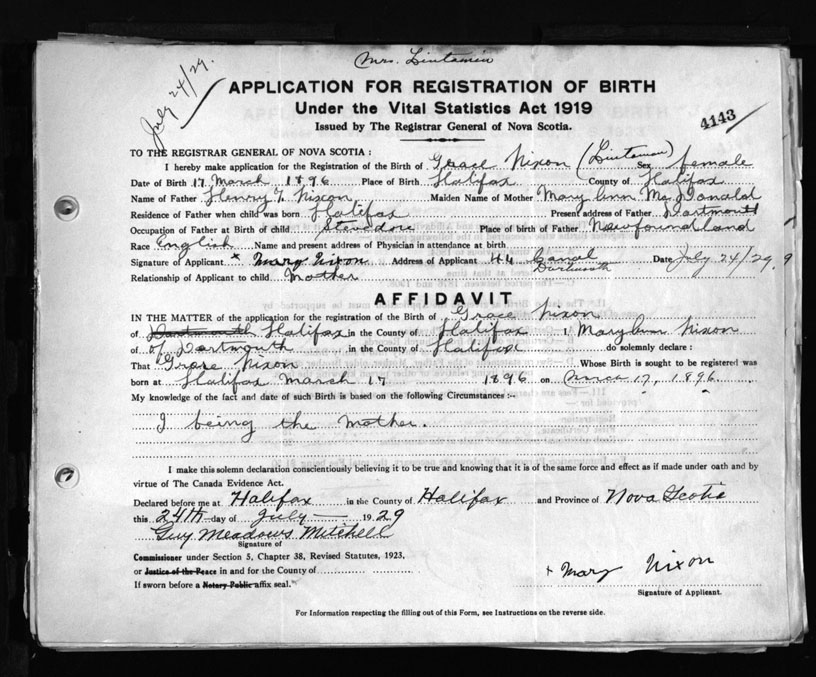 Mrs. Lintaman
July 24/29.
APPLICATION FOR REGISTRATION OF BIRTH
Under the Vital Statistics Act 1919
Issued by The Registrar General of Nova Scotia.
4143
TO THE REGISTRAR GENERAL OF NOVA SCOTIA :
I hereby make application for the Registration of the Birth of Grace Nixon (Lintaman) Sex female
Date of Birth 17 March 1896 Place of Birth Halifax County of Halifax
Name of Father Henry T. Nixon Maiden Name of Mother Mary Ann McDonald
Residence of Father when child was born Halifax Present address of Father Dartmouth
Occupation of Father at Birth of child Stevedore Place of birth of Father Newfoundland
Race English Name and present address of Physician in attendance at birth
Signature of Applicant x Mary Nixon Address of Applicant 44 Canal Dartmouth Date July 24/29.
Relationship of Applicant to child Mother
AFFIDAVIT
IN THE MATTER of the application for the registration of the Birth of Grace Nixon
of Dartmouth Halifax in the County of Halifax I Mary Ann Nixon
of of Dartmouth in the County of Halifax do solemnly declare :
That Grace Nixon Whose Birth is sought to be registered was
born at Halifax March 17 1896 on 17, 1896.
My knowledge of the fact and date of such Birth is based on the following Circumstances :--
I being the Mother.
I make this solemn declaration conscientiously believing it to be true and knowing that it is of the same force and effect as if made under oath and by
virtue of The Canada Evidence Act.
Declared before me at Halifax in the County of Halifax and Province of Nova Scotia
this 24th day of July 1929
Guy Meadows Mitchell
Signature of
Commissioner under Section 5, Chapter 38, Revised Statutes, 1923,
or Justice of the Peace in and for the County of
If sworn before a Notary Public affix seal.
x Mary Nixon
Signature of Applicant.
For Information respecting the filling out of this Form, see Instructions on the reverse side.